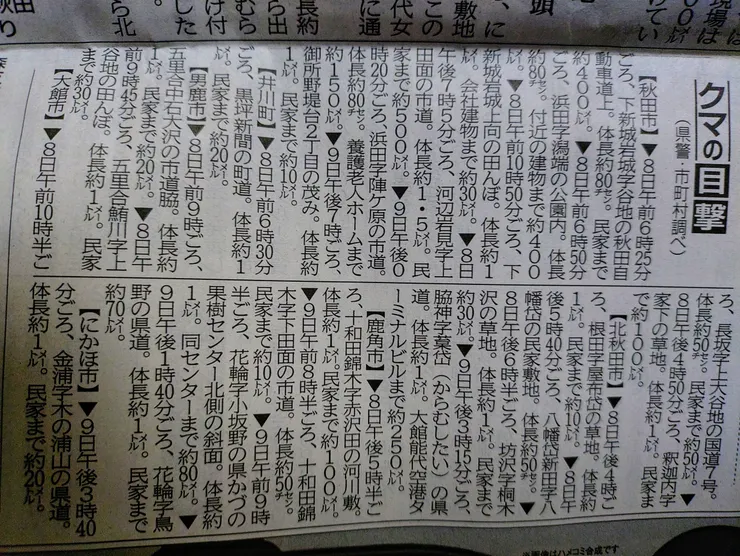 クマの目撃
（県警、市町村調べ）
【秋田市】▼8日午前6時25分
ごろ、下新城岩城字谷地の秋田自
動車道上。体長約80㌢。民家まで
約400㍍。▼8日午前6時50分
ごろ、浜田字潟端の公園内。体長
約80㌢。付近の建物まで約400
㍍。▼8日午前10時50分ごろ、下
新城岩城上向の田んぼ。体長約1
㍍。会社建物まで約30㍍。▼8日
午後7時5分ごろ、河辺岩見字上
田面の市道。体長約1・5㍍。民
家まで約500㍍。▼9日午後0
時20分ごろ、浜田字陣ケ原の市道。
体長約80㌢。養護老人ホームまで
約150㍍。▼9日午後7時ごろ、
御所野堤台2丁目の茂み。体長約
1㍍。民家まで約10㍍。
【井川町】▼8日午前6時30分
ごろ、黒坪新間の町道。体長約1
㍍。民家まで約20㍍。
【男鹿市】▼8日午前9時ごろ、
五里合中石大沢の市道脇。体長約
1㍍。民家まで約20㍍。▼8日午
前9時45分ごろ、五里合鮪川字上
谷地の田んぼ。体長約1㍍。民家
まで約30㍍。
【大館市】▼8日午前10時半ご
ろ、長坂字上大谷地の国道7号。
体長約50㌢。民家まで約50㍍。▼
8日午後4時50分ごろ、釈迦内字
家下の草地。体長約1㍍。民家ま
で約100㍍。
【北秋田市】▼8日午後4時ご
ろ、根田字屋布岱の草地。体長約
1㍍。民家まで約10㍍。▼8日午
後5時40分ごろ、八幡岱新田字八
幡岱の民家敷地。体長約50㌢。▼
8日午後6時半ごろ、坊沢字桐木
沢の草地。体長約1㍍。民家まで
約30㍍。▼9日午後3時15分ごろ、
脇神字蓑岱（からむしたい）の県
道。体長約1㍍。大館能代空港タ
ーミナルビルまで約250㍍。
【鹿角市】▼8日午後5時半ご
ろ、十和田錦木字赤沢田の河川敷。
体長約1㍍。民家まで約100㍍。
▼9日午前8時半ごろ、十和田錦
木字下田面の市道。体長約50㌢。
民家まで約10㍍。▼9日午前9時
半ごろ、花輪字小坂野の県かづの
果樹センター北側の斜面。体長約
1㍍。同センターまで約80㍍。▼
9日午後1時40分ごろ、花輪字鳥
野の県道。体長約1㍍。民家まで
約70㍍。
【にかほ市】▼9日午後3時40
分ごろ、金浦字木の浦山の県道。
体長約1㍍。民家まで約20㍍。
※画像はハメコミ合成です